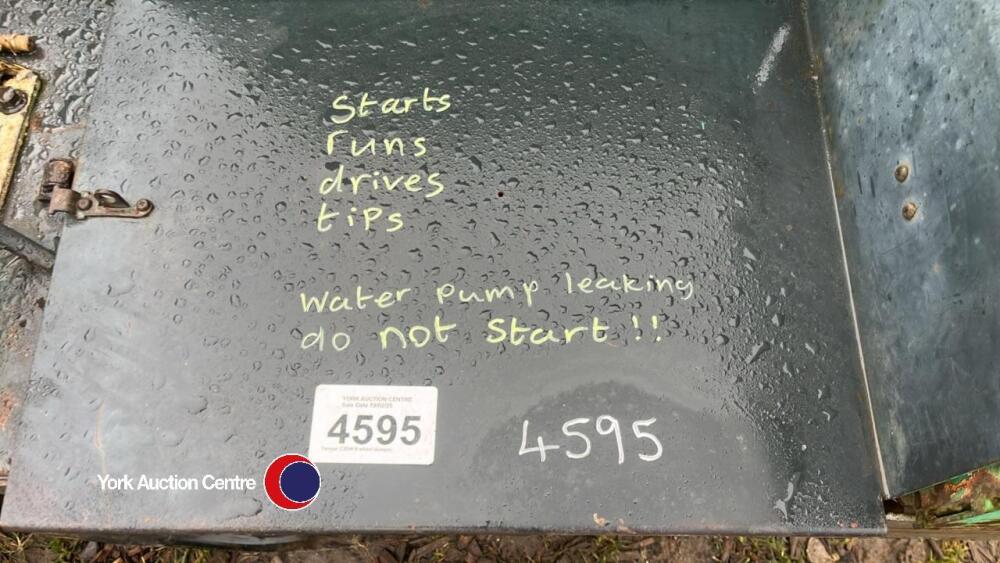 Starts
runs
drives
tips
water pump leaking
do not start !!
YORK AUCTION CENTRE
4595
4595
York Auction Centre